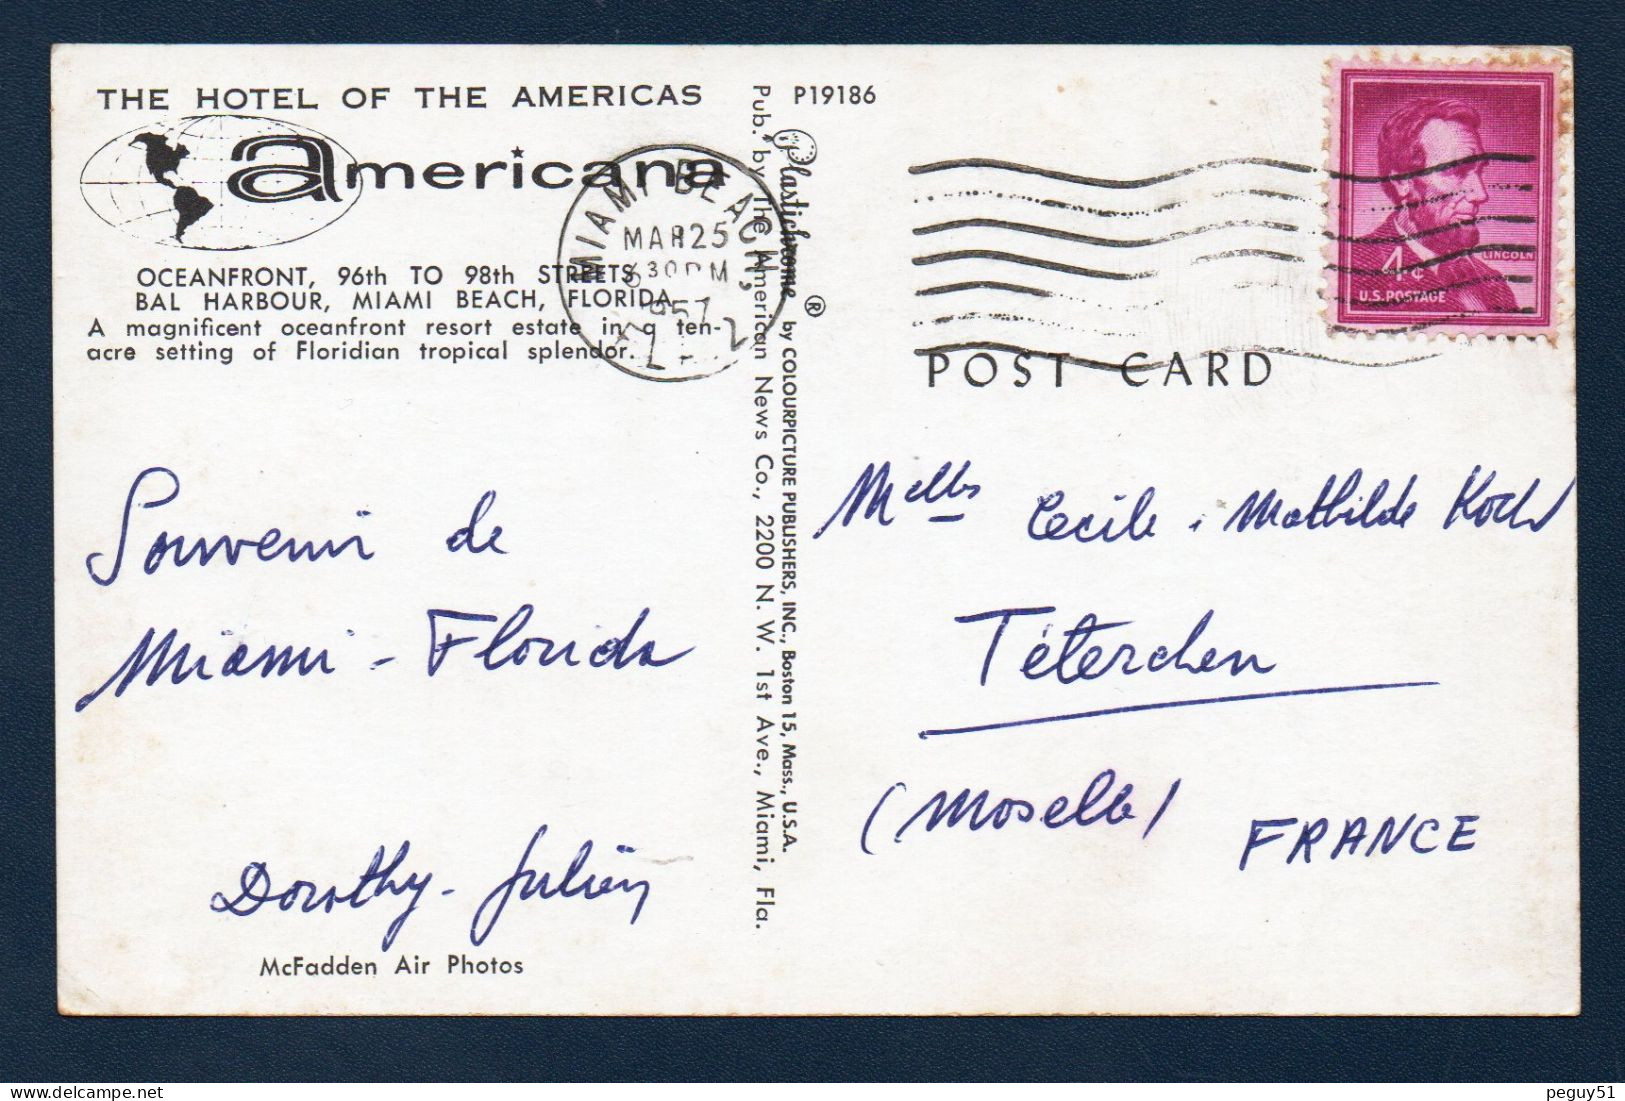 THE HOTEL OF THE AMERICAS
americana
OCEANFRONT, 96th TO 98th STREETS
BAL HARBOUR, MIAMI BEACH, FLORIDA
A magnificent oceanfront resort estate in a ten-
acre setting of Floridian tropical splendor.
MIAMI BEACH,
MAR 25
6 30 PM
1957
P19186
Pub. by The American News Co., 2200 N. W. 1st Ave., Miami, Fla.
Plastichrome ® by COLOURPICTURE PUBLISHERS, INC., Boston 15, Mass., U.S.A.
LINCOLN
4¢
U.S. POSTAGE
POST CARD
Souvenir de
Miami - Florida
Dorothy - Julien
McFadden Air Photos
Melles Cecile. Mathilde Koch
Téterchen
(Moselle)
FRANCE
peguy51